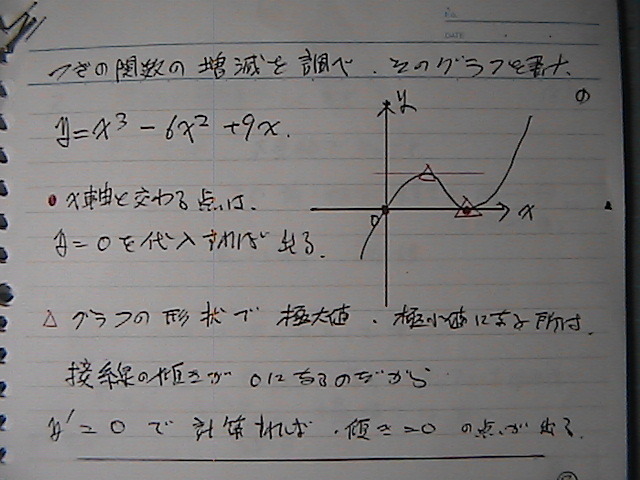 No.
DATE
つぎの関数の増減を調べ、そのグラフを書け。
①
y = x³ - 6x² + 9x.
y
x
O
● x軸と交わる点は、
y = 0 を代入すれば出る。
△ グラフの形状で極大値、極小値になる所は、
接線の傾きが0になるのだから
y' = 0 で計算すれば、傾き=0 の点が出る。